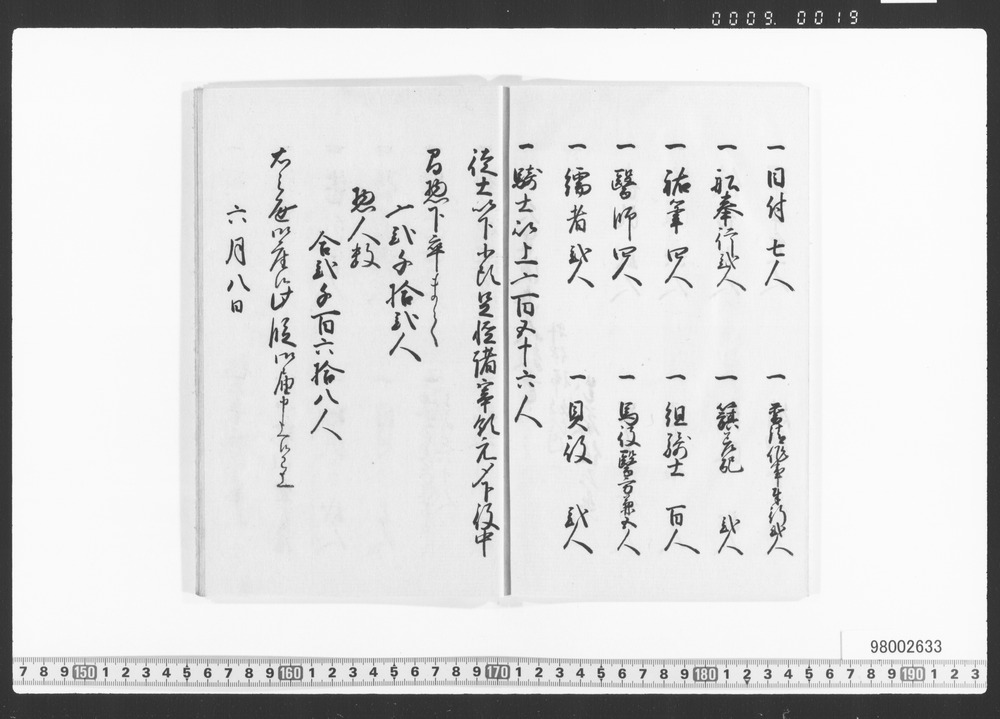 0009.0019
一 目付 七人
一 普請作事奉行弐人
一 船奉行弐人
一 旗差配 弐人
一 祐筆 四人
一 組騎士 百人
一 醫師 四人
一 馬役醫方兼五人
一 儒者 弐人
一 貝役 弐人
一 騎士以上 二百五十六人
徒士以下小頭足軽諸宰領元〆下役中
間惣下卒まて
弐千拾弐人
惣人数
合弐千百六拾八人
六月八日
98002633
7 8 9 150 1 2 3 4 5 6 7 8 9 160 1 2 3 4 5 6 7 8 9 170 1 2 3 4 5 6 7 8 9 180 1 2 3 4 5 6 7 8 9 190 1 2 3